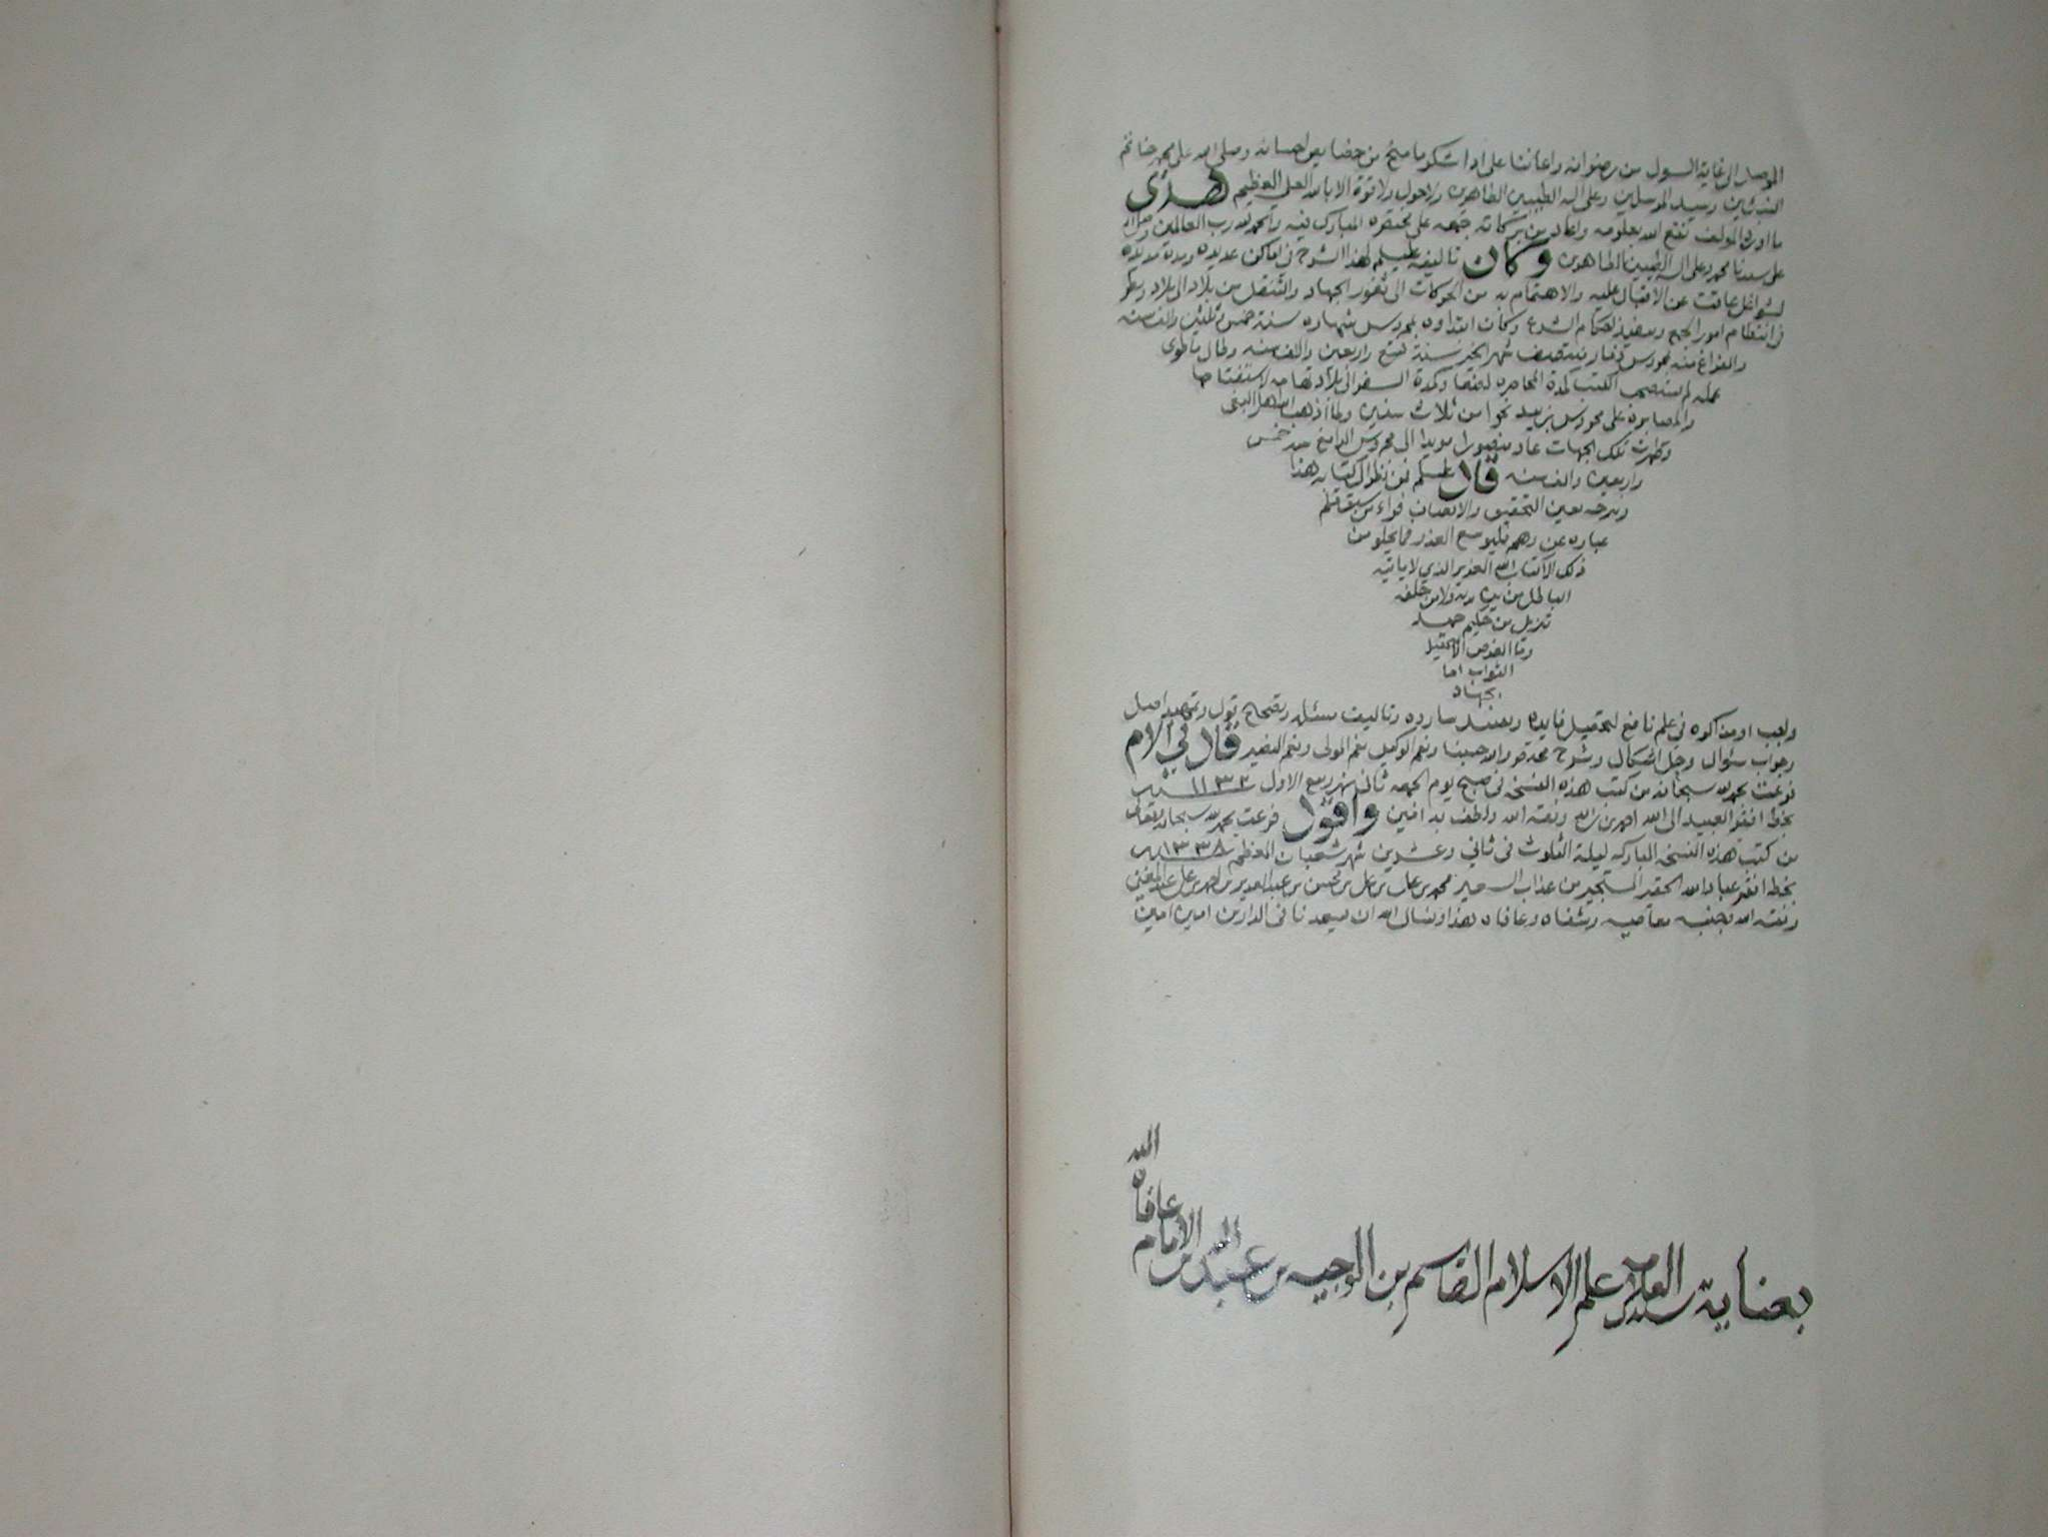 الموصل الى غاية السول من رضوانه واعاننا على اداء شكر ما منح من خصايص احسانه وصلى الله على محمد خاتم
النبيين وسيد المرسلين وعلى اله الطيبين الطاهرين ولا حول ولا قوة الا بالله العلي العظيم هذى
ما اورده المولف نفع الله بعلومه واعاد من بركاته جمعه على مختصره المبارك فيه والحمد لله رب العالمين وصلى الله
على سيدنا محمد وعلى اله الطيبين الطاهرين وكان تاليفه عليلم لهذا الشرح في اماكن عديده ومدة مديده
لشواغل عاقت عن الاقبال عليه والاهتمام به من الحركات الى ثغور الجهاد والتنقل من بلاد الى بلاد
في انتظام امور الجهم وتنفيذ احكام الشرع وكان ابتداوه بمحروس شهاره سنة خمس وثلثين والف سنه
والفراغ منه بمحروس ذمار منتصف شهر الحجة سنة تسع واربعين والف سنه وطال ما طوى
عمله لم يستصحب الكتب لمدة المحاصره لصنعا وكمدة السفر الى بلاد تهامه لاستفتاحها
والمصابره على محروس زبيد نحوا من ثلاث سنين ولما اذهب الله اهل البغي
وطهرت تلك الجهات عاد منصورا مويدا الى محروس الدامغ سنة خمس
واربعين والف سنه قال عليلم فمن نظر الى كتابي هذا
وسرحه بعين التحقيق والانصاف فراء من سبقة قلم
عباره عن وهم فليوسع العذر فما يخلو من
ذلك الا كتاب الله العزيز الذي لا ياتيه
الباطل من بين يديه ولا من خلفه
تنزيل من حكيم حميد
وما الغرض الا تحصيل
الثواب اما
بجهاد
واجب او مذاكره في علم نافع لتحصيل فايده وتصيد شارده وتاليف مسئله وتصحيح قول وتمهيد اصل
وجواب سئوال وحل اشكال وشرح صدور والله حسبنا ونعم الوكيل نعم المولى ونعم النصير قال في الام
فرغت بحمد لله سبحانه من كتب هذه النسخه في صبح يوم الجمعه ثاني شهر ربيع الاول سنة ١١٣٢
بخط افقر العبيد الى الله احمد بن وفقه الله ولطف به امين واقول فرغت بحمد لله سبحانه وتعالى
من كتب هذه النسخه المباركه ليلة الثلوث في ثاني وعشرين شهر شعبان المعظم سنة ١٣٣٨
بخط افقر عباد الله الحقير المستجير من عذاب السعير محمد بن علي بن علي بن محسن بن عبد العزيز بن احمد بن علي
وفقه الله بجنبه معاصيه وشفاه وعافاه هذا ونسال الله ان يسعدنا في الدارين امين امين
بعناية سيدي العلامه علم الاسلام القاسم بن الوجيه بن عبد الله بن الامام عافاه الله